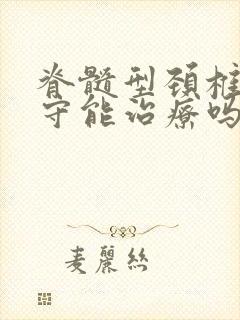 脊髓型颈椎
守能治療吗
麦麗絲